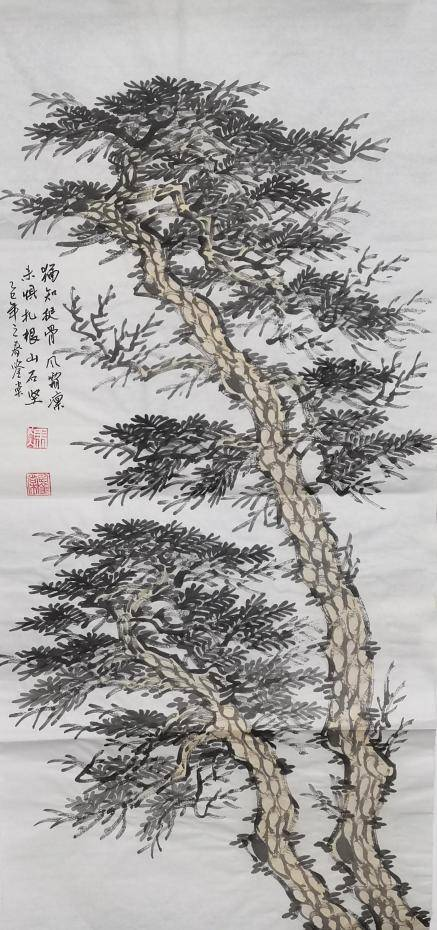 犹知挺骨风霜凛
未惧扎根山石坚
乙巳年之春莹棠